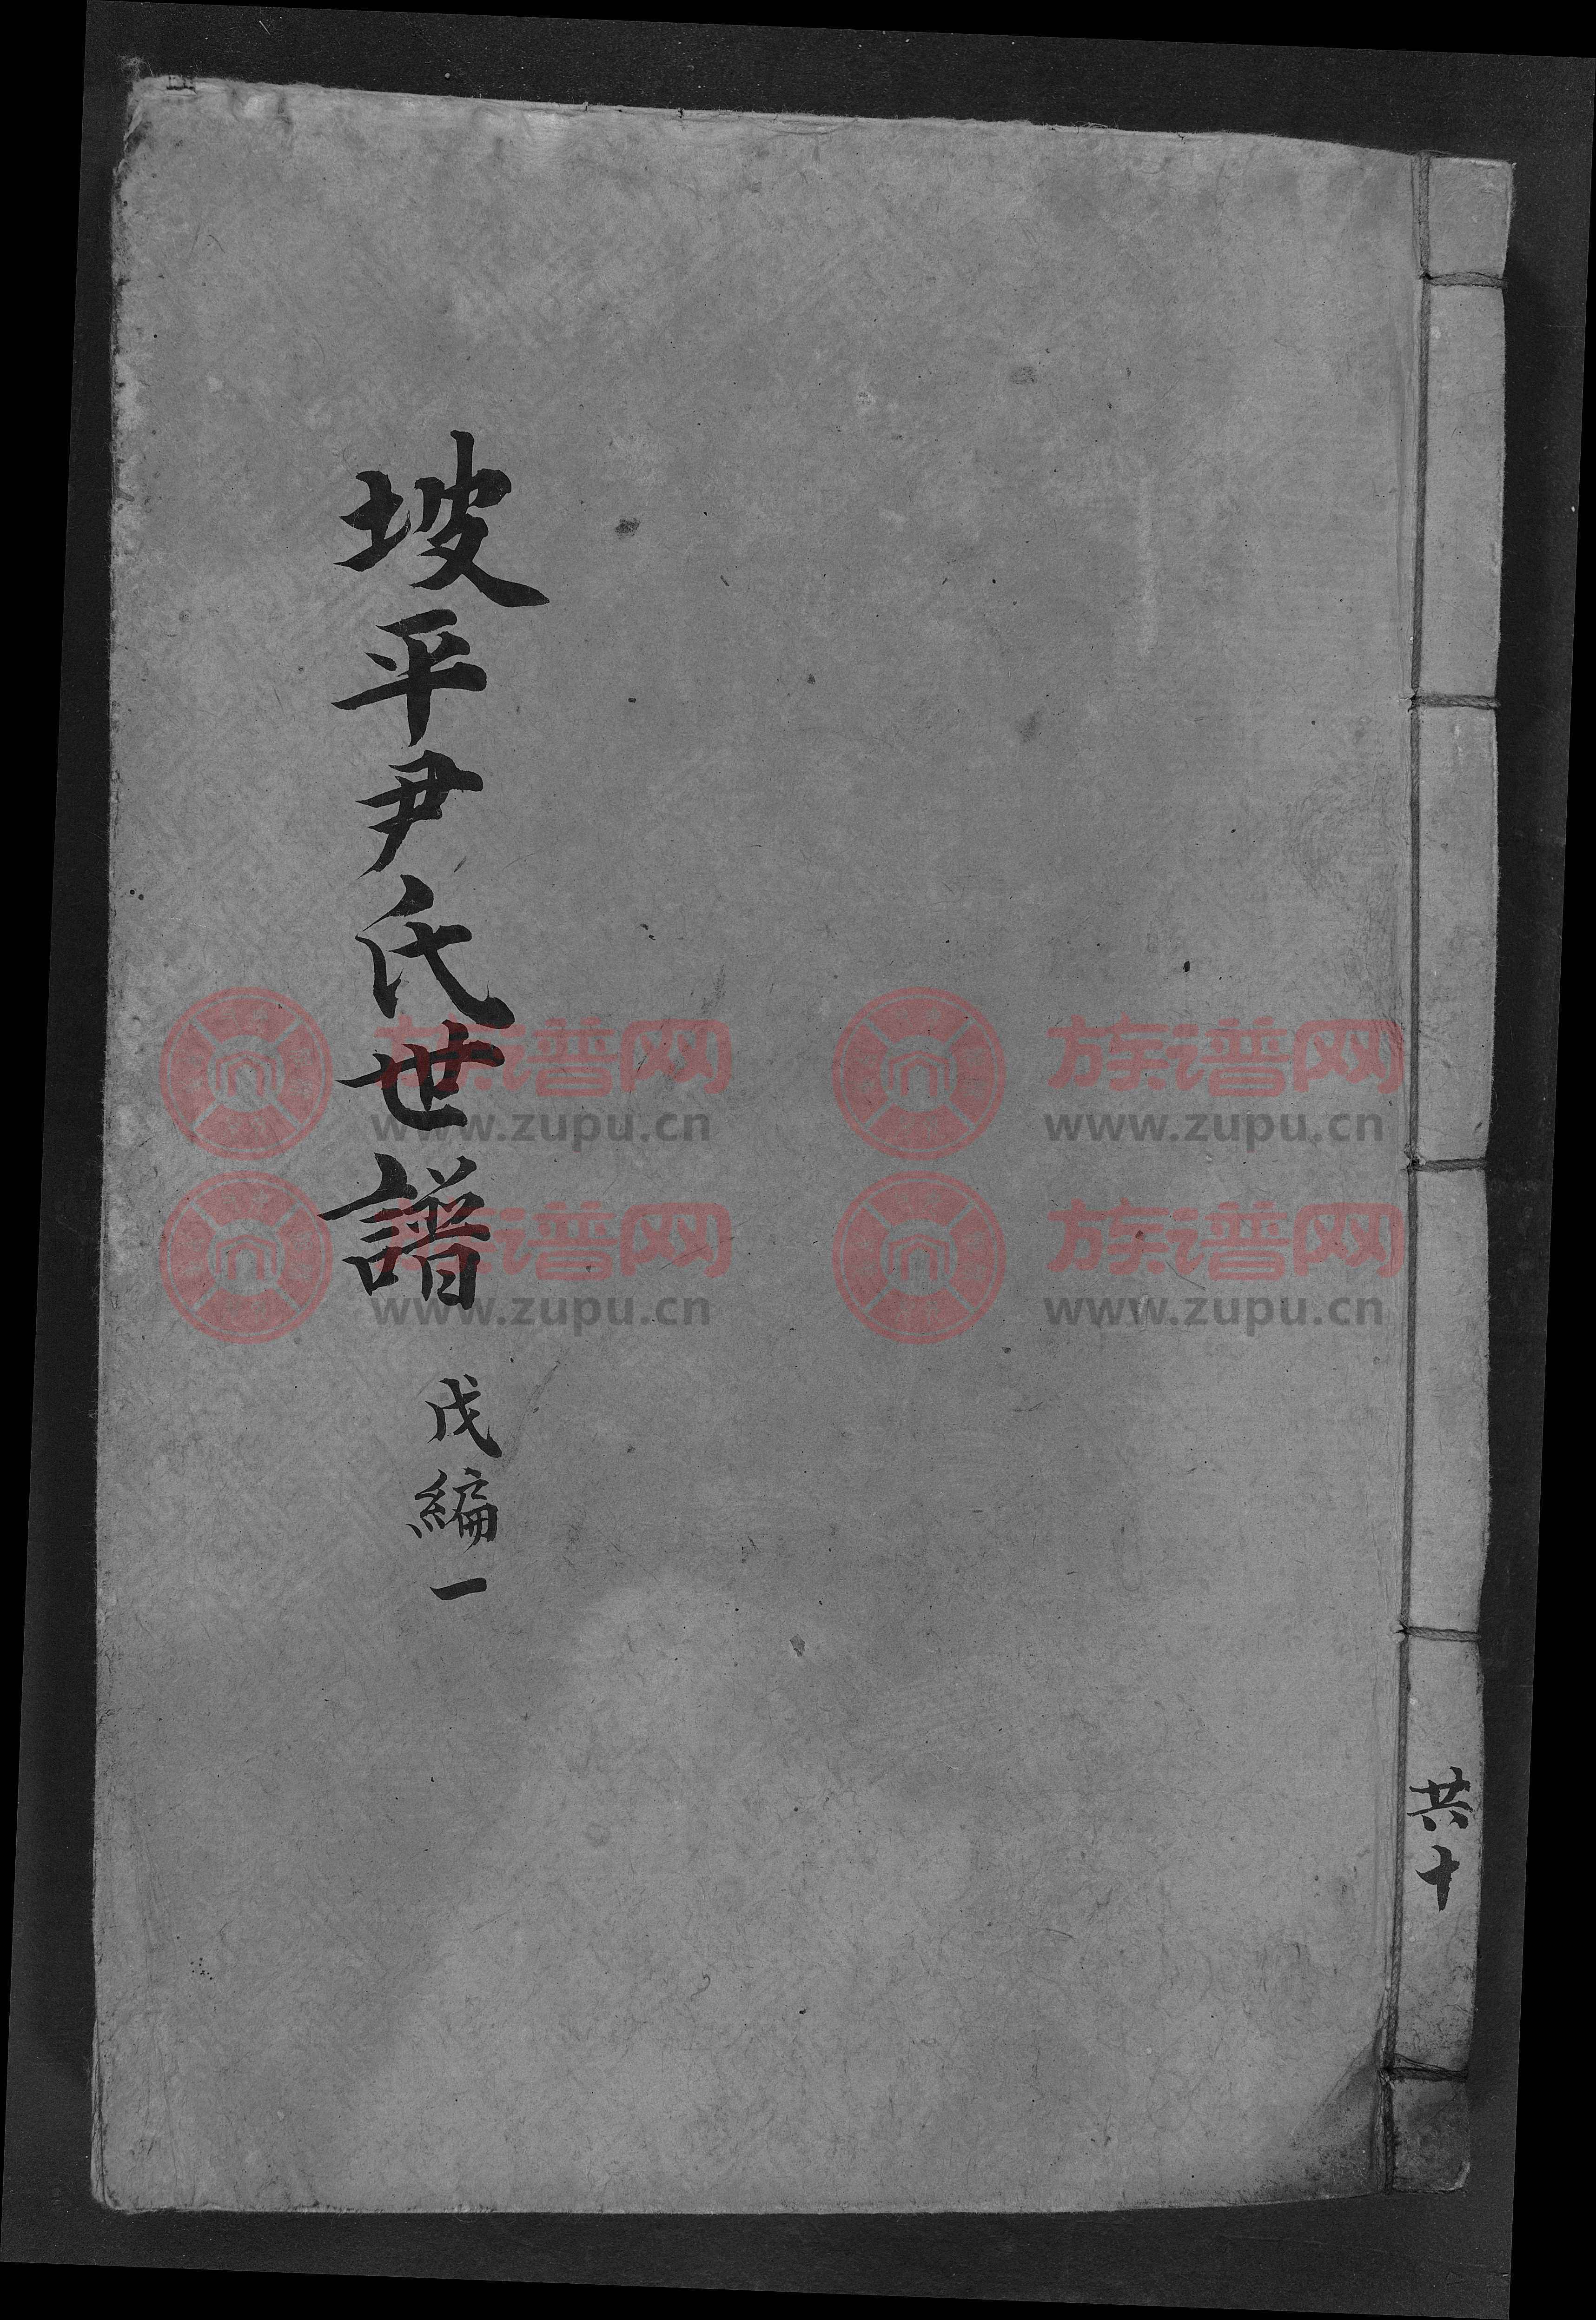 坡平尹氏世譜
戊編一
共十
族谱网
www.zupu.cn
族谱网
www.zupu.cn
族谱网
www.zupu.cn
族谱网
www.zupu.cn